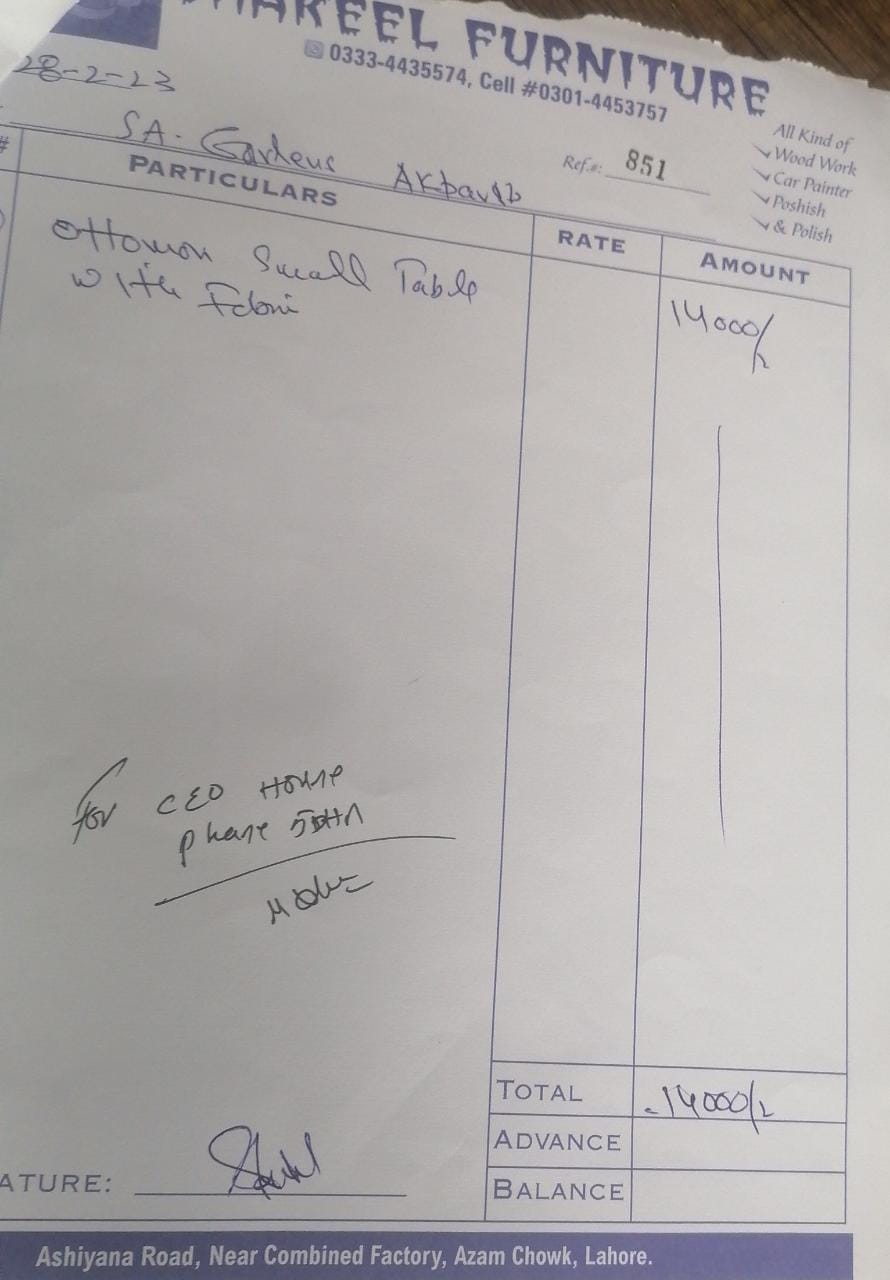 HAKEEL FURNITURE
0333-4435574, Cell #0301-4453757
28-2-23
All Kind of
Wood Work
Car Painter
Poshish
& Polish
Ref.#: 851
SA. Gardens
# PARTICULARS RATE AMOUNT
Ottomon Small Table 14000/-
with
for CEO House
phase 5 DHA
TOTAL 14000/-
ADVANCE
BALANCE
ATURE:
Ashiyana Road, Near Combined Factory, Azam Chowk, Lahore.